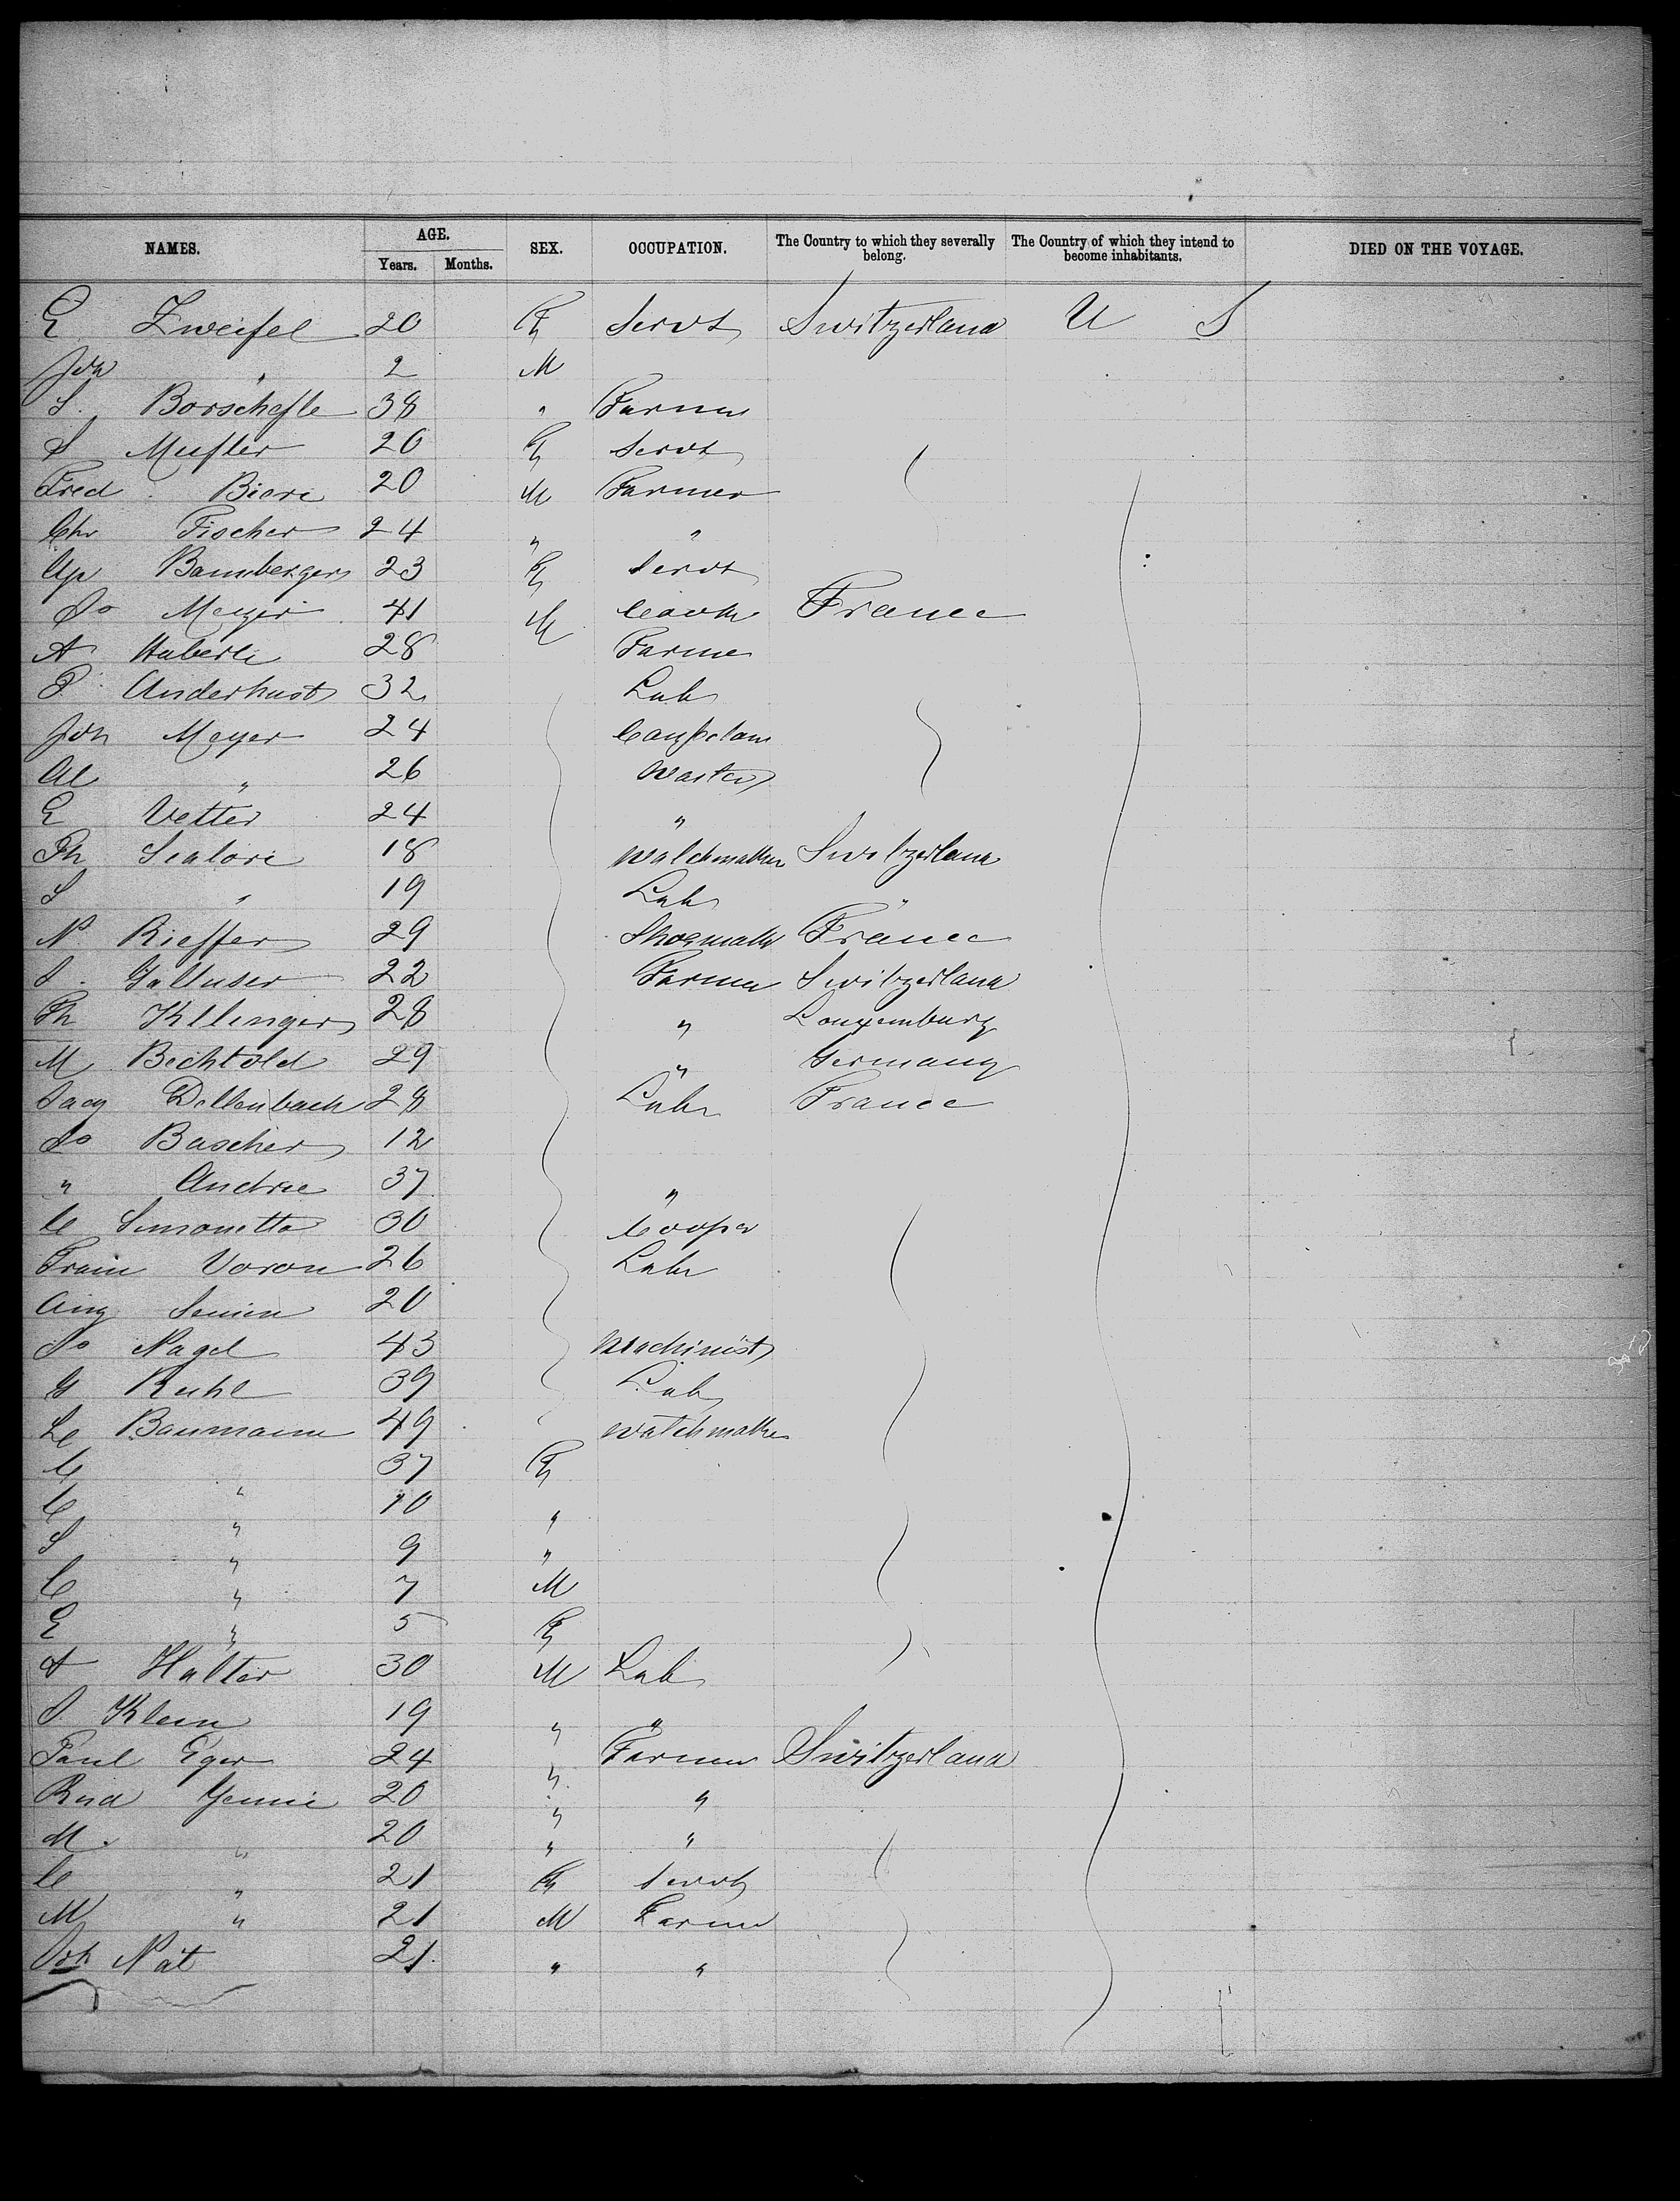 NAMES. AGE. SEX. OCCUPATION. The Country to which they severally belong. The Country of which they intend to become inhabitants. DIED ON THE VOYAGE.
Years. Months.
E Zweifel 20 F Servt Switzerland U S
Joh " 2 M
S. Borschefle 38 " Farmer
S Mufler 20 F Servt
Fred Bieri 20 M Farmer
Chr Fischer 24 " "
Bamberger 23 F Servt
Jo Meyer 41 M France
A Haberli 28 Farme
P. Anderhust 32 Lab
Joh Meyer 24
Al " 26 Waiter
E Vetter 24 "
Ph Sealori 18 Watchmaker Switzerland
S " 19 Lab "
N. Rieffer 29 Shoemaker France
J. Galluser 22 Farmer Switzerland
Th Kllinger 28 " Louxemburg
M Bechtold 29 " Germany
Jacq Dellenbach 28 Labr France
Jo Bascher 12
" Andrie 37 "
C Simonetta 30 Cooper
Fran Voron 26 Labr
Aug 20
Jo Nagel 43 Machinist
G Ruhl 39 Lab
Le Baumann 49 Watchmaker
C " 37 F
C " 10 "
S " 9 "
C " 7 M
E " 5 F
A Halter 30 M Lab
J. Klein 19 " "
Paul Eger 24 " Farmer Switzerland
Rud Yenni 20 " "
M. " 20 " "
C " 21 F Servt
M " 21 M Farmer
Joh Nat 21. " "